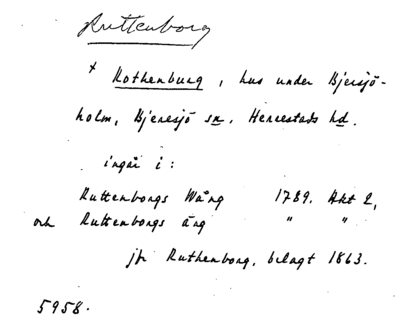 Ruttenborg
+ Rothenburg, hus under Bjersjö-
holm, Bjeresjö sn. Herrestads hd.
ingår i:
Ruttenborgs Wång 1789. Akt 2,
och Ruttenborgs äng " "
jfr Ruthenborg, belagt 1863.
5958.